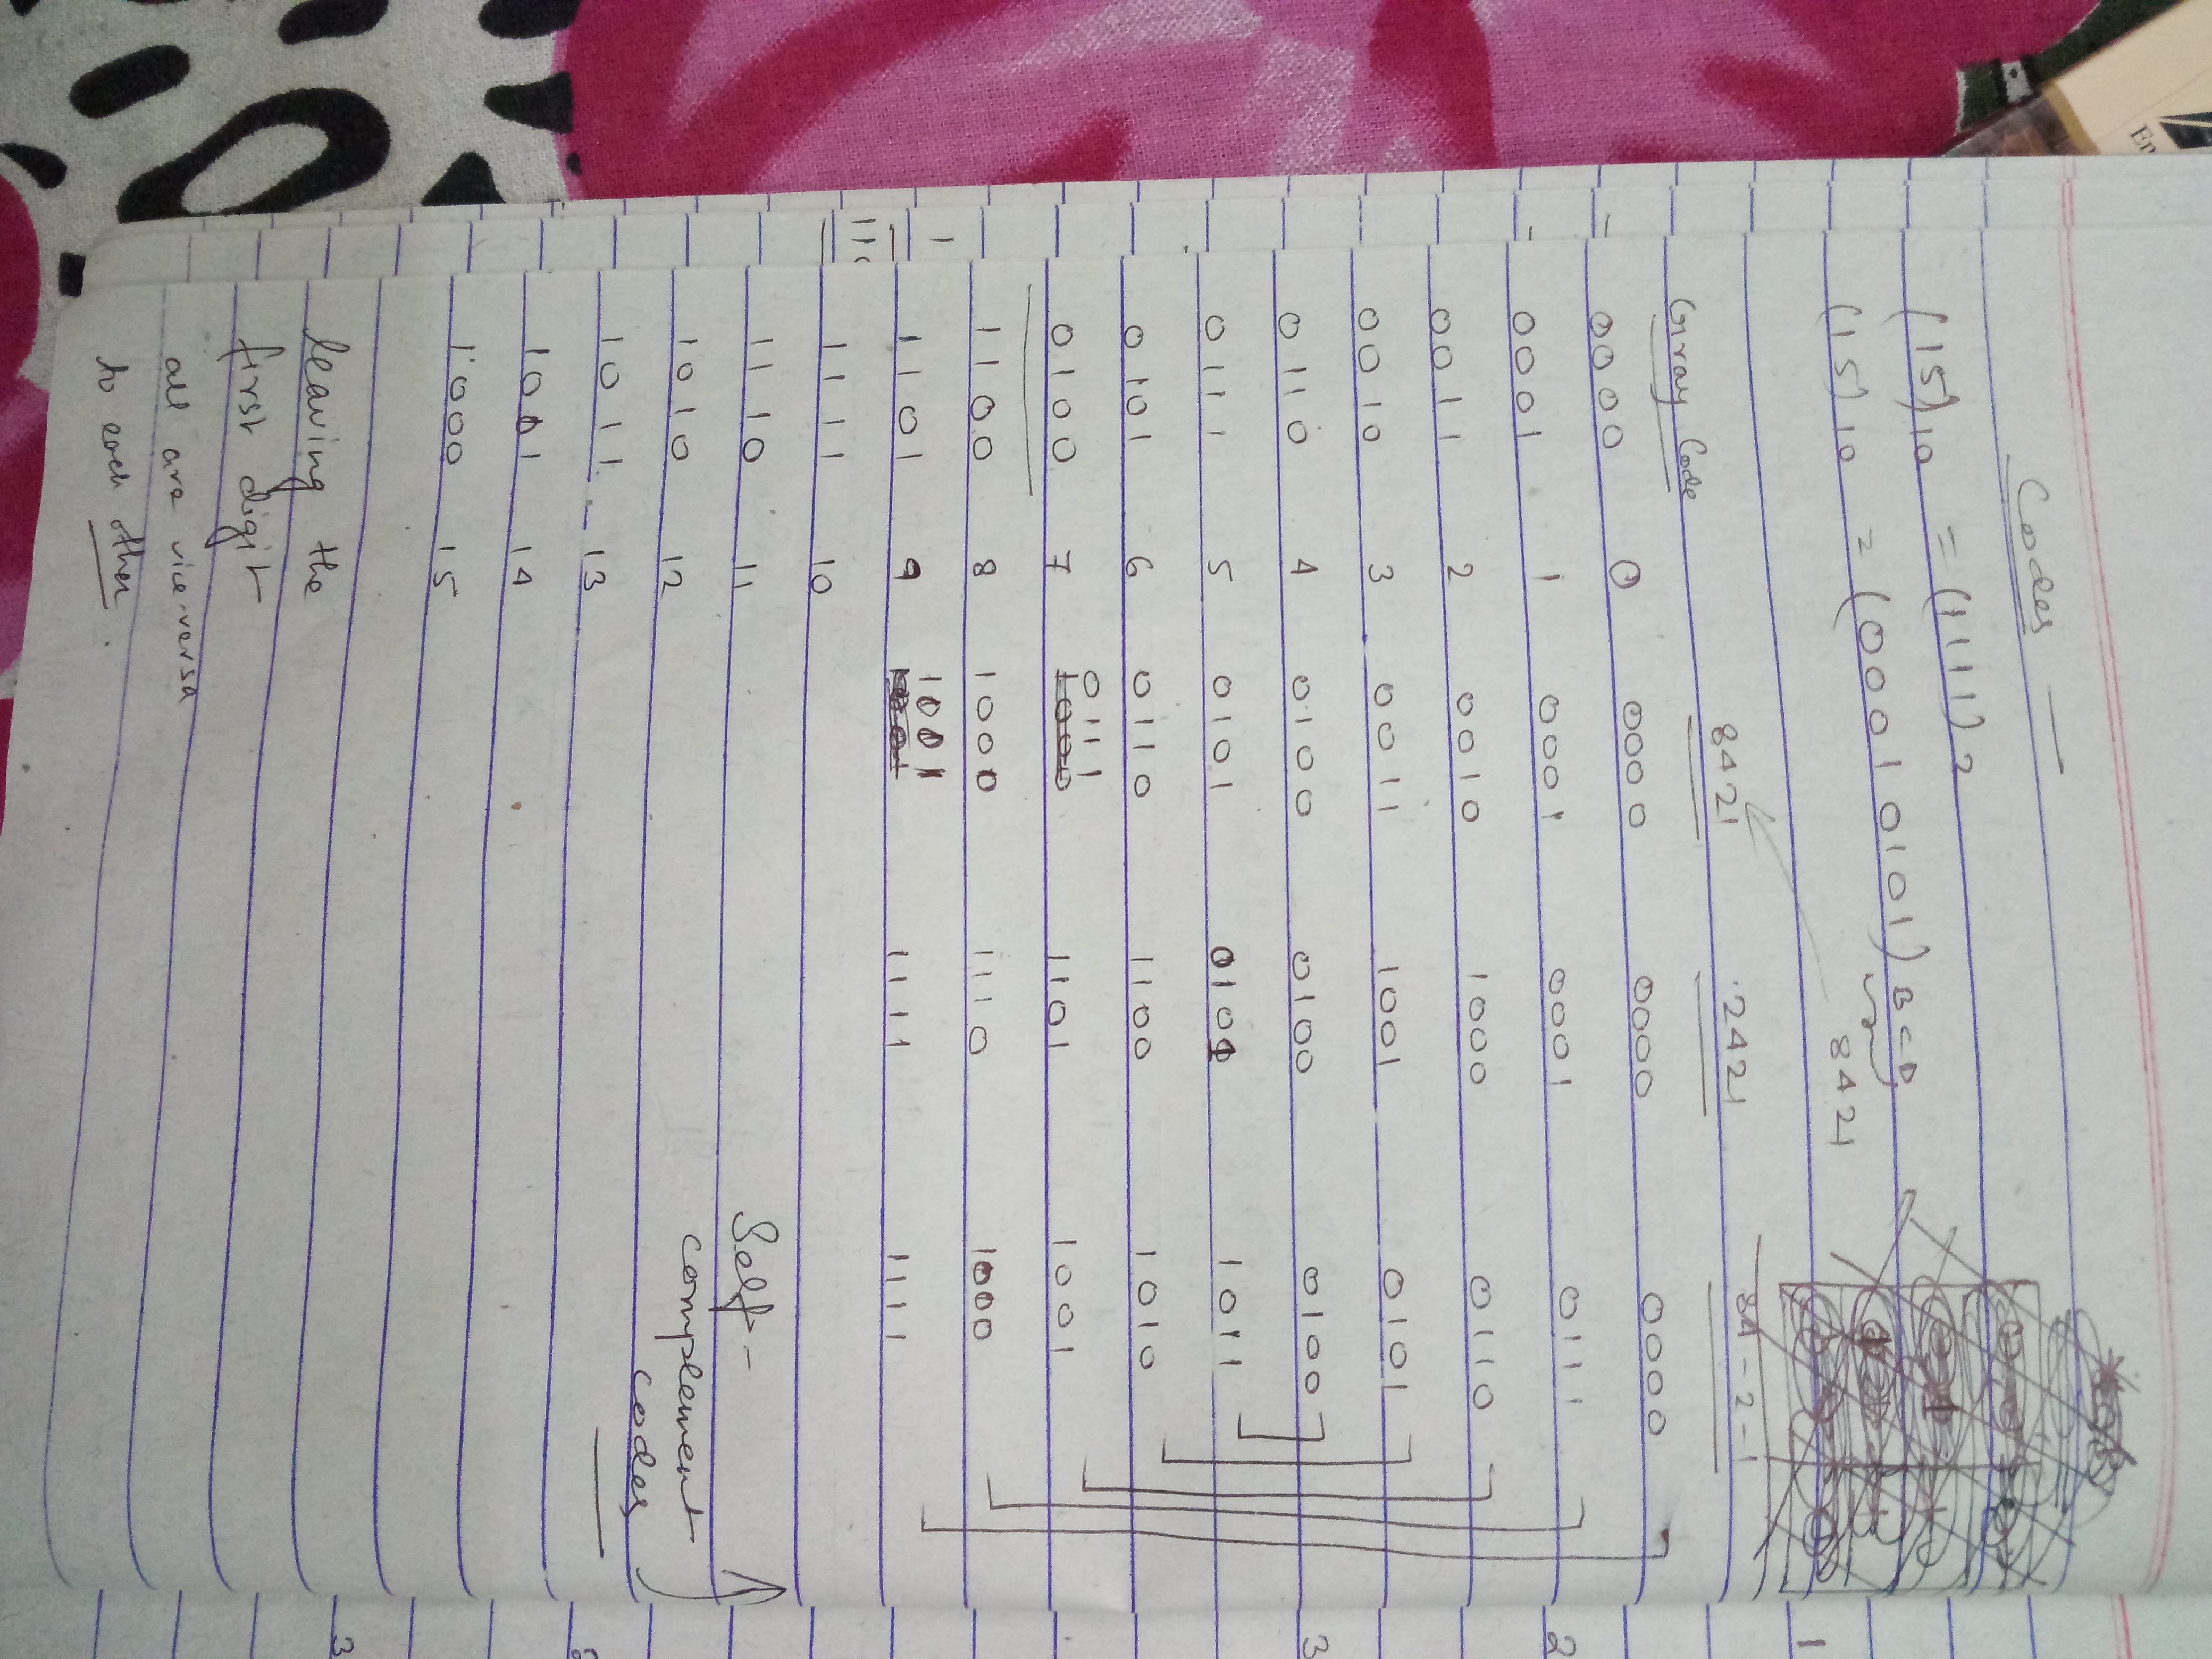 En
Codes —
(15)10 = (1111)2
(15)10 = (00010101) BCD
8421
Gray Code 8421 2421 84-2-1
0000 0 0000 0000 0000
0001 1 0001 0001 0111
0011 2 0010 1000 0110
0010 3 0011 1001 0101
0110 4 0100 0100 0100
0111 5 0101 0101 1011
0101 6 0110 1100 1010
0111
0100 7 1000 1101 1001
1100 8 1000 1110 1000
1001
1101 9 1111 1111
1111 10
1110 11
1010 12
1011 13
1001 14
1000 15
Self-
complement
codes
leaving the
first digit
all are vice-versa
to each other.
1
2
3
2
3